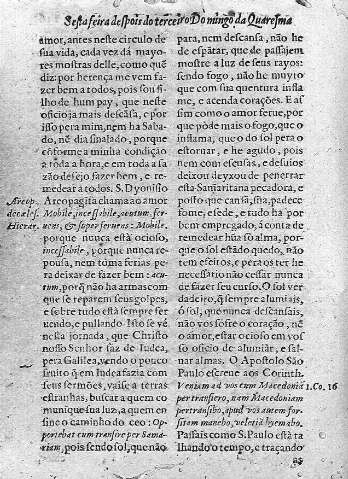 Sesta feira despois do terceiro Domingo da Quaresma
amor, antes neste circulo de
sua vida, cada vez dá mayo-
res mostras delle, como quẽ
diz: por herença me vem fa-
zer bem a todos, pois sou fi-
lho de hum pay, que neste
officio ja mais descãsa, e por
isso pera mim, nem ha Saba-
do, nẽ dia sinalado, porque
conforme a minha condição
a toda a hora, e em toda a sa
zão desejo fazer bem, e re-
medear a todos. S. Dyonisio
Areop.
de cæles.
Hierar.
Areopagita chama ao amor
Mobile, incessabile, acutum, fer-
uens, & super feruens: Mobile,
porque nunca está ocioso,
incessabile, porque nunca re-
pousa, nem toma ferias pe-
ra deixar de fazer bem: acu-
tum, porq̃ não ha armas com
que se reparem seus golpes,
e sobre tudo está sempre fer
uendo, e pullando. Isto se vé
nesta jornada, que Christo
nosso Senhor faz de Iudea,
pera Galilea, vendo o pouco
fruito q̃ em Iudea fazia com
seus sermões, vaise a terras
estranhas, buscar a quem com
munique sua luz, a quem en
sine o caminho do ceo: Op-
portebat eum transire per Sama-
riam, pois sendo sol, que não
para, nem descansa, não he
de espãtar, que de passajem
mostre a luz de seus rayos:
sendo fogo, não he muyto
que com sua quentura infla
me, e acenda corações. E as
sim como o amor ferue, por
que póde mais o fogo, que o
inflama, que o do sol pera o
estoruar, e he agudo, pois
nem com escusas, e desuios
deixou de yxou de penetrar
esta Samaritana pecadora, e
posto que cansã, sũa, padece
fome, e sede, e tudo ha por
bem empregado, á conta de
remedear hũa só alma, por-
que o sol estãdo quedo, não
tem efeitos, e pera os ter lhe
necessario não cessar nunca
de fazer seu curso. O sol ver
dadeiro, q̃ sempre alumiais,
ó sol, que nunca descansais,
não vos sofre o coração, nẽ
o amor, estar ocioso em vos
so officio de alumiár, e sal-
nar almas. O Apostolo São
Paulo escreue aos Corinth.
Veniam ad vos cum Macedoniã
1. Co. 16
pertransero, nam Macedoniam
pertransibo, apud vos autem for-
sitam manebo, vel etiã hyemabo.
Passais como S. Paulo está ta
lhando o tempo, e traçando